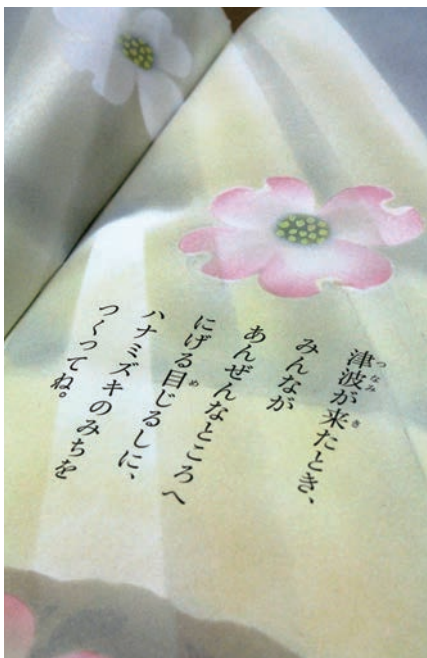 津波が来たとき、
みんなが
あんぜんなところへ
にげる目じるしに、
ハナミズキのみちを
つくってね。